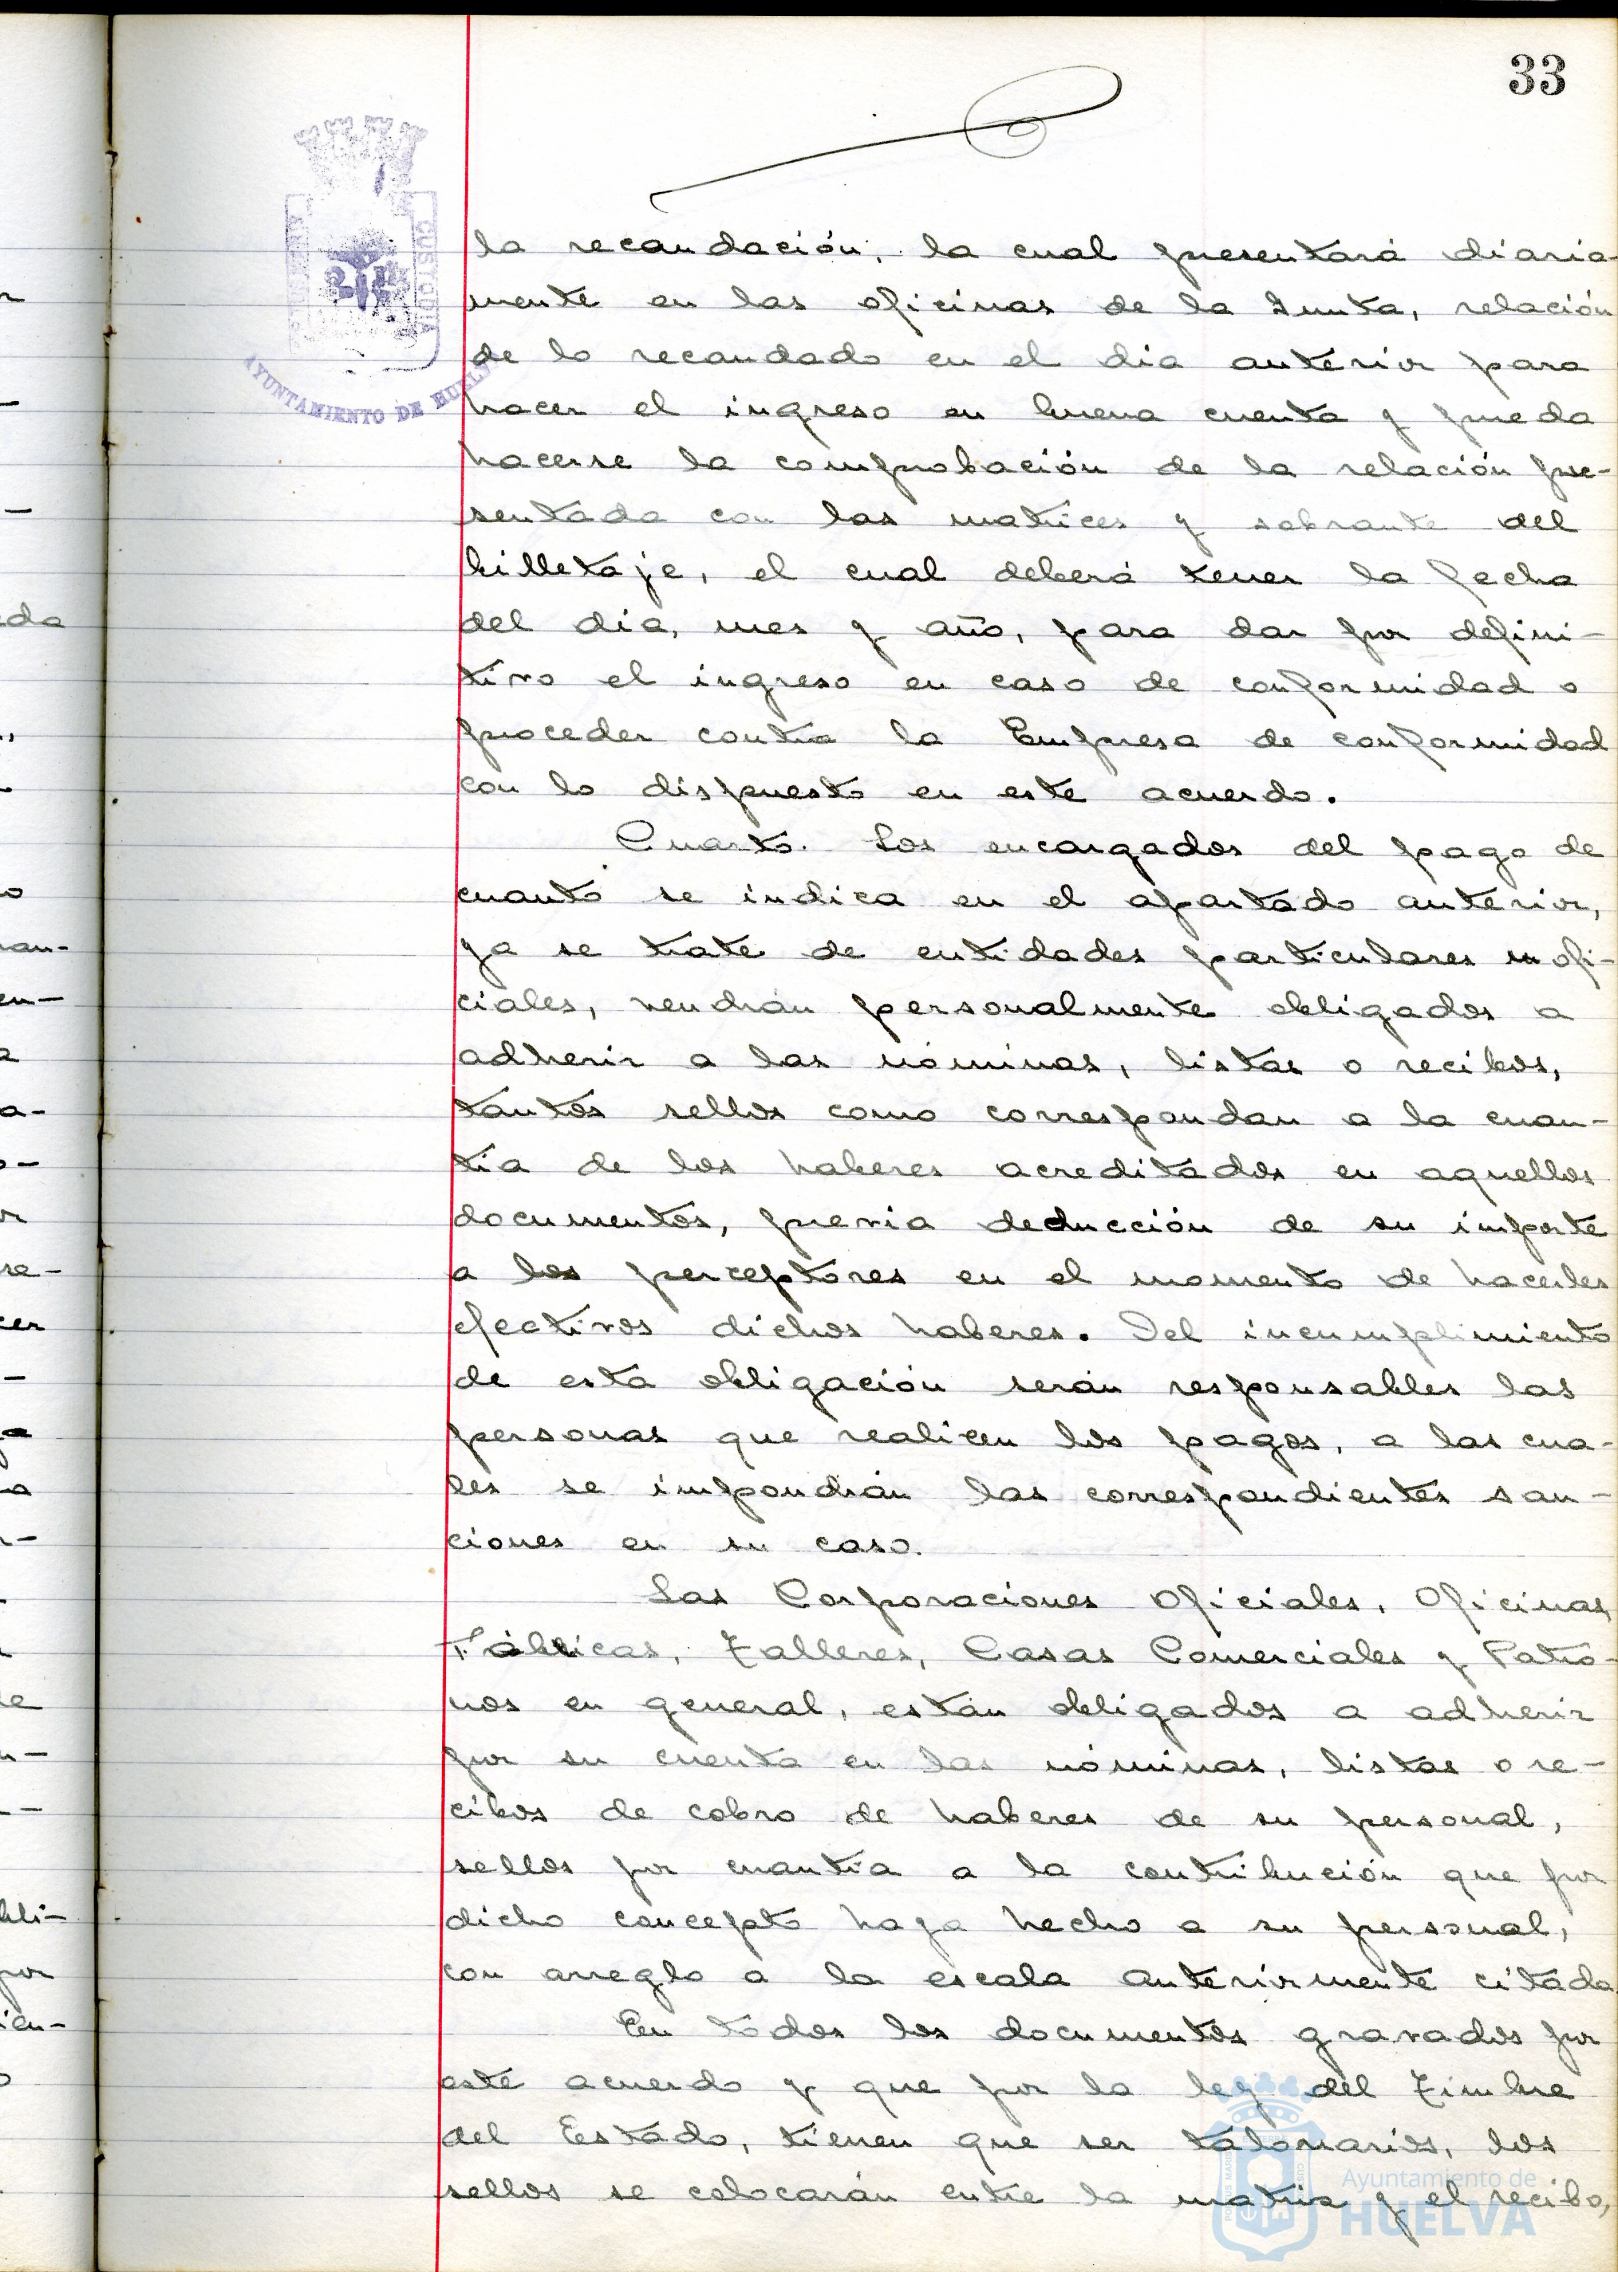 33
AYUNTAMIENTO DE HUELVA
CUSTODIA
la recaudación, la cual presentará diaria-
mente en las oficinas de la Junta, relación
de lo recaudado en el dia anterior para
hacer el ingreso en buena cuenta y pueda
hacerse la comprobación de la relación pre-
sentada con las matrices y sobrante del
billetaje, el cual deberá tener la fecha
del dia, mes y año, para dar por defini-
tivo el ingreso en caso de conformidad o
proceder contra la Empresa de conformidad
con lo dispuesto en este acuerdo.
Cuarto. Los encargados del pago de
cuanto se indica en el apartado anterior,
ya se trate de entidades particulares u ofi-
ciales, vendrán personalmente obligados a
adherir a las nóminas, listas o recibos,
tantos sellos como correspondan a la cuan-
tia de los haberes acreditados en aquellos
documentos, previa deducción de su importe
a los perceptores en el momento de hacerles
efectivos dichos haberes. Del incumplimiento
de esta obligación serán responsables las
personas que realicen los pagos, a las cua-
les se impondrán las correspondientes san-
ciones en su caso.
Las Corporaciones Oficiales, Oficinas,
Fábricas, Talleres, Casas Comerciales y Patro-
nos en general, están obligados a adherir
por su cuenta en las nóminas, listas o re-
cibos de cobro de haberes de su personal,
sellos por cuantia a la contribución que por
dicho concepto haya hecho a su personal,
con arreglo a la escala anteriormente citada
En todos los documentos gravados por
este acuerdo y que por la ley del Timbre
del Estado, tienen que ser talonarios, los
sellos se colocarán entre la matriz y el recibo,
Ayuntamiento de
HUELVA